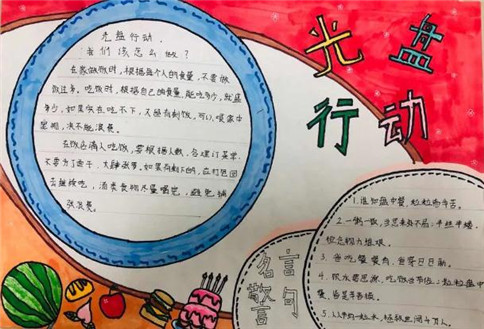 光盘行动
光盘行动.
我们该怎么做?
在家做饭时,根据每个人的食量,不要做
做过多,吃饭时,根据自己的食量,能吃多少,就盛
多少,如果实在吃不下,又剩有剩饭,可以喂家中
里期,决不能浪费。
在饭店请人吃饭,要根据人数,合理订菜单,
不要为了面子,大肆浪费。如果有剩下的,应打包回
去继续吃,酒类食物尽量喝完,避免铺
张浪费。
名言
敬言句
1.谁知盘中餐,粒粒皆辛苦。
2.一粥一饭,当思来处不易;半丝半缕,
恒念物力维艰。
3.
4.饮水要思源,吃饭当节俭。粒粒盘中
餐,皆是辛苦换。
5.